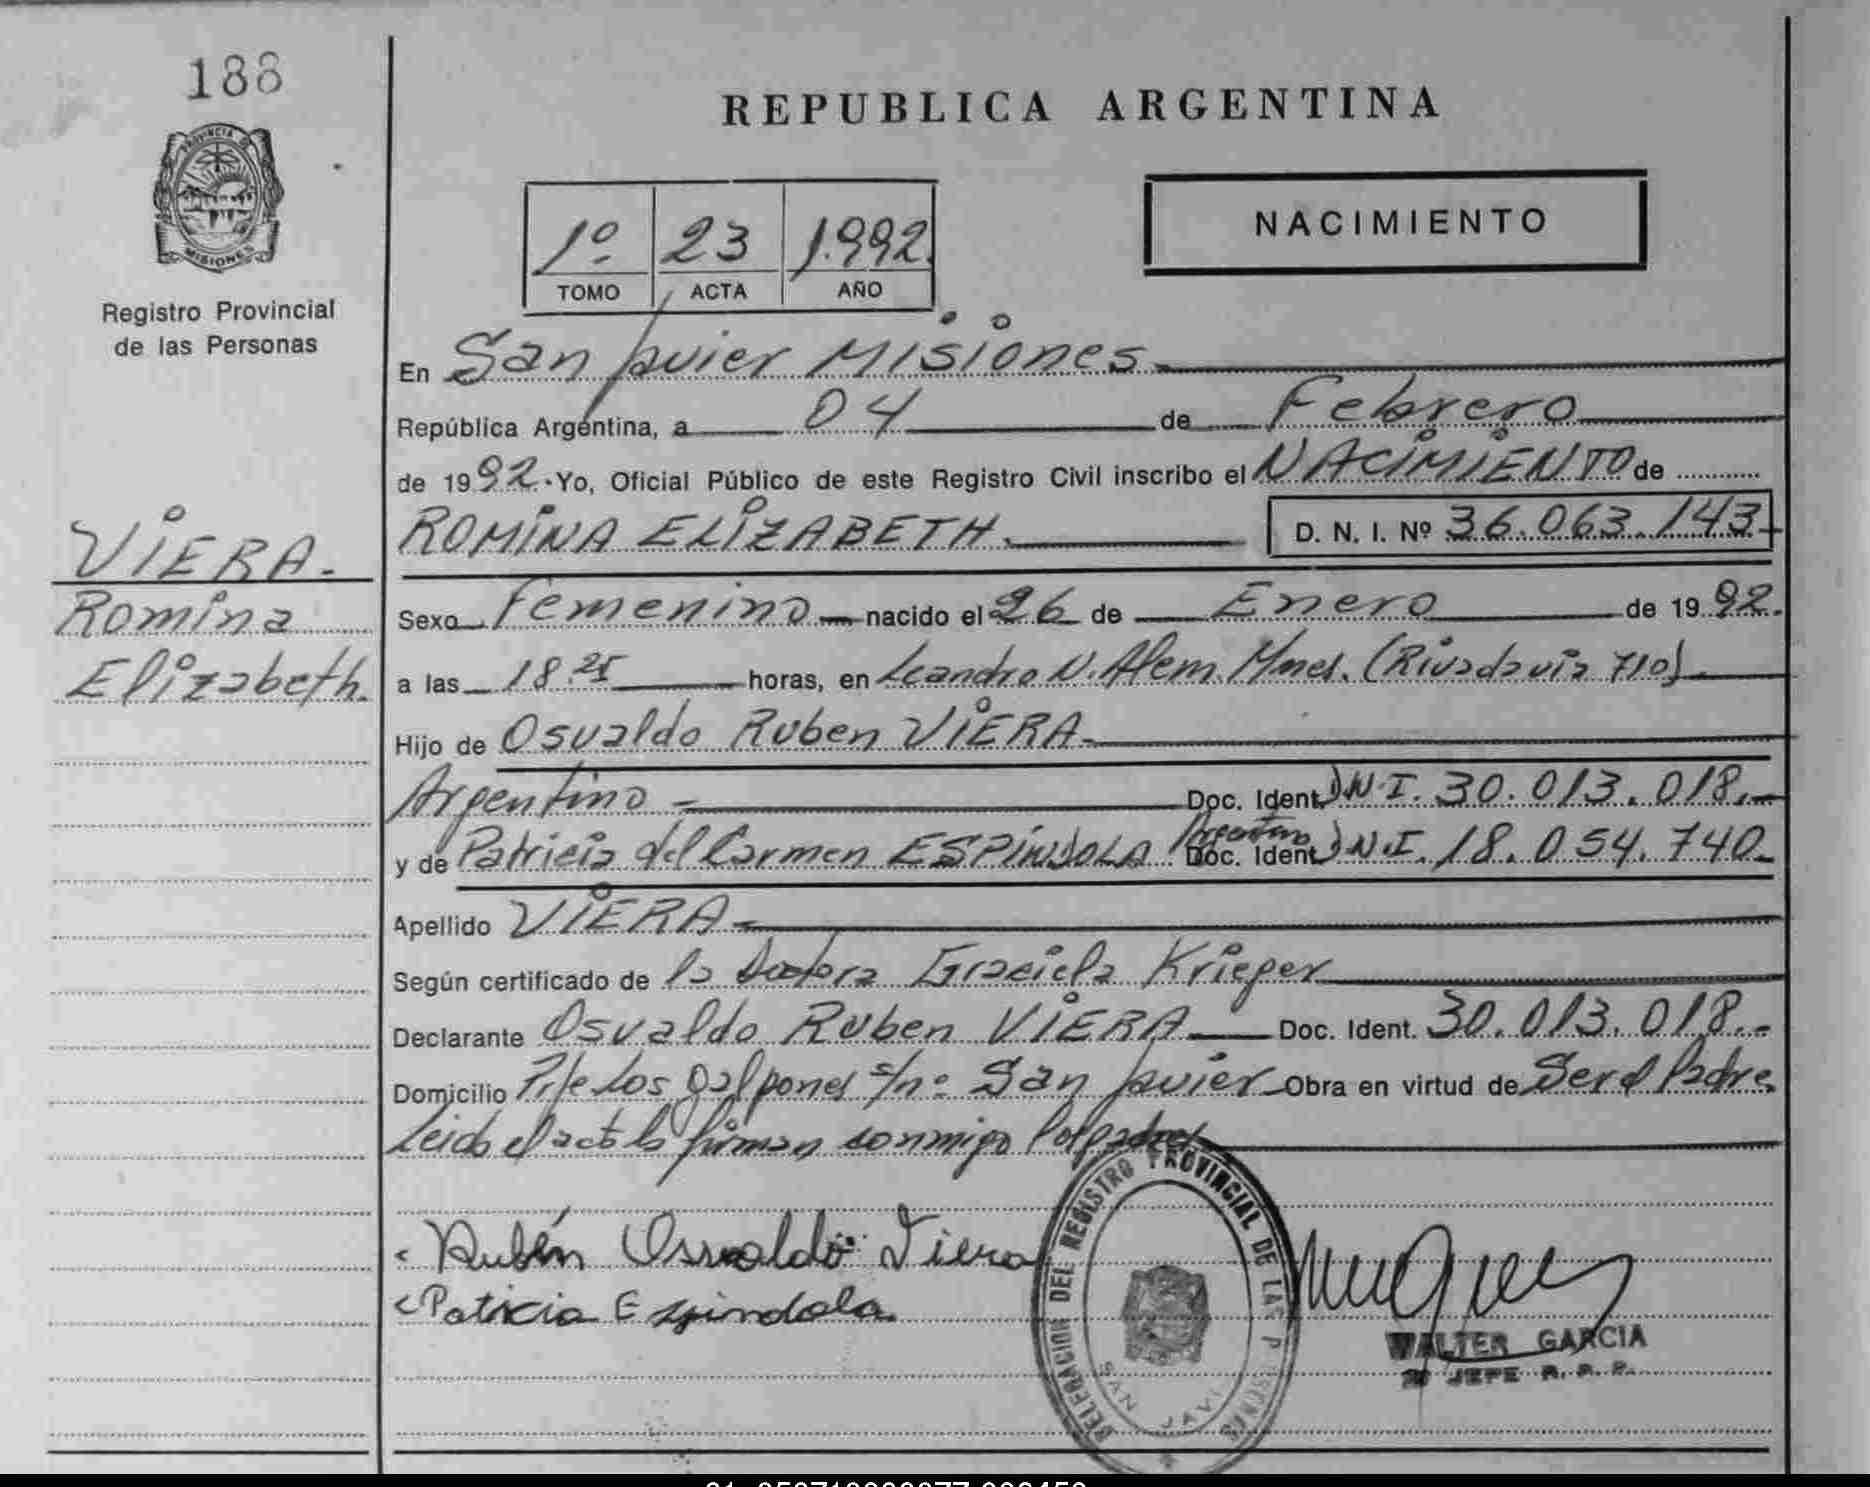 188
PROVINCIA DE
MISIONES
Registro Provincial
de las Personas
VIERA.
Romina
Elizabeth.
REPUBLICA ARGENTINA
1º 23 1.992.
TOMO ACTA AÑO
NACIMIENTO
En San Javier Misiones
República Argentina, a 04 de Febrero
de 1992. Yo, Oficial Público de este Registro Civil inscribo el NACIMIENTO de
ROMINA ELIZABETH. D. N. I. Nº 36.063.143
Sexo Femenino nacido el 26 de Enero de 1992.
a las 18.25 horas, en Leandro N. Alem. Mnes. (Rivadavia 710)
Hijo de Osvaldo Ruben VIERA
Argentino Doc. Ident. D.N.I. 30.013.018.
y de Patricia del Carmen ESPINDOLA Argentina Doc. Ident. D.N.I. 18.054.740
Apellido VIERA
Según certificado de la Doctora Graciela Krieger
Declarante Osvaldo Ruben VIERA Doc. Ident. 30.013.018.
Domicilio Pje Los Galpones s/nº San Javier Obra en virtud de Ser el Padre
Leido el acta la firman conmigo los padres
Rubén Osvaldo Viera
Patricia Espindola
DELEGACION DEL REGISTRO PROVINCIAL DE LAS PERSONAS
SAN JAVI
WALTER GARCIA
JEFE R. P. P.